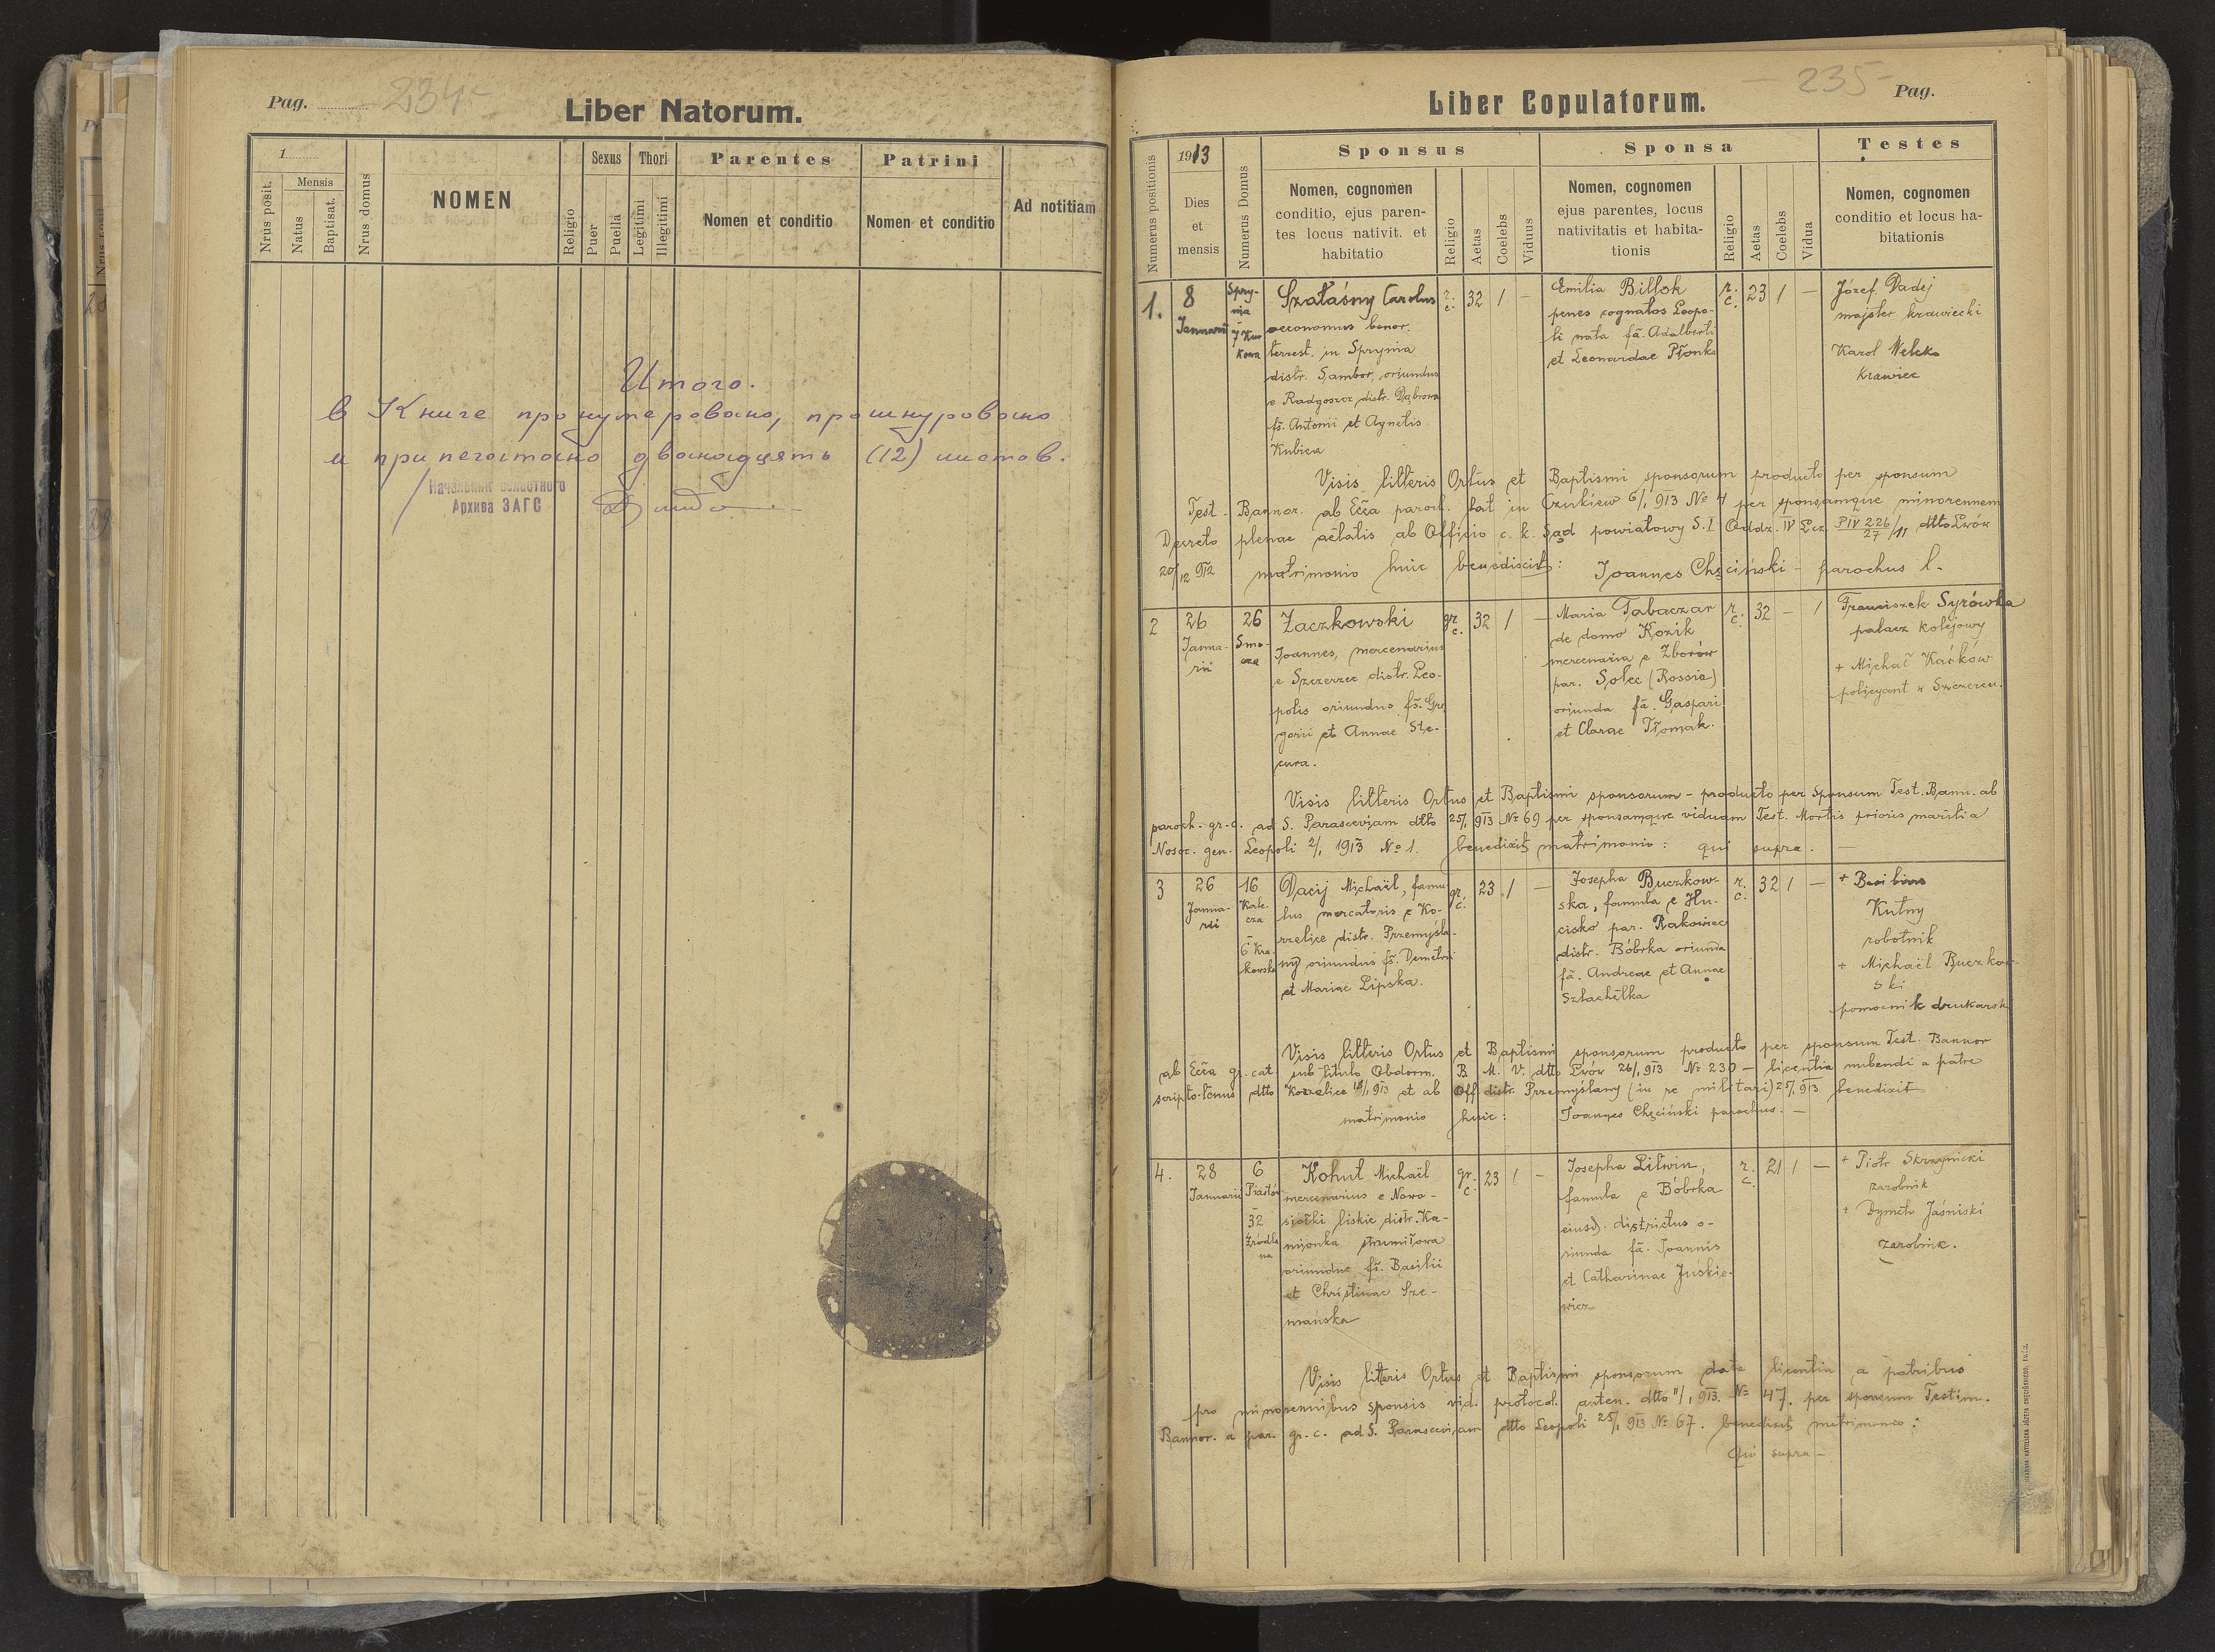 Pag. 234-
Liber Natorum.
1
Nrus posit.
Mensis
Natus
Baptisat.
Nrus domus
NOMEN
Religio
Sexus
Puer
Puella
Thori
Legitimi
Illegitimi
Parentes
Nomen et conditio
Patrini
Nomen et conditio
Ad notitiam
Итого.
в Книге пронумеровано, прошнуровано
и припечатано двенадцать (12) листов.
Начальник областного
Архива ЗАГС
- 235 - Pag.
Liber Copulatorum.
Numerus positionis
1913
Dies
et
mensis
Numerus Domus
Sponsus
Nomen, cognomen
conditio, ejus paren-
tes locus nativit. et
habitatio
Religio
Aetas
Coelebs
Viduus
Sponsa
Nomen, cognomen
ejus parentes, locus
nativitatis et habita-
tionis
Religio
Aetas
Coelebs
Vidua
Testes
Nomen, cognomen
conditio et locus ha-
bitationis
1.
8
Januarii
Spry-
nia
-
7 Kur
kowa
Szałaśny Carolus
oeconomus bonor.
terrest. in Sprynia
distr. Sambor, oriundus
e Radgoszcz distr. Dąbrowa
fs. Antonii et Agnetis
Kubica
r.
c.
32 / -
Emilia Billok
penes cognatos Leopo-
li nata fa. Adalberti
et Leonardae Płonka
r.
c.
23 / -
Józef Dadej
majster krawiecki
Karol
krawiec
Visis litteris Ortus et Baptismi sponsorum producto per sponsum
Test. Bannor. ab Ecca paroch. lat in Czukiew 6/1 913 No 4 per sponsamque minorennem
Decreto plenae aetatis ab Officio c. k. Sąd powiatowy S. I Oddz. IV Lcz PIV 226/27 /11 dtto Lwów
20/12 912 matrimonio huic benedixit: Joannes Chęciński - parochus l.
2
26
Janua-
rii
26
Smo-
cza
Zaczkowski
Joannes, mercenarius
e Szczerzec distr. Leo-
polis oriundus fs. Gre
gorii et Annae Ste-
cura.
gr.
c.
32 / -
Maria Tabaczar
de domo Kozik
mercenaria e Zborów
par. Solec (Rossia)
oriunda fa. Gaspari
et Clarae Tłomak.
r.
c.
32 - /
Franciszek Syrówka
palacz kolejowy
+ Michał Karków
policyant w Szczercu.
Visis litteris Ortus et Baptismi sponsorum - producto per Sponsum Test. Bann. ab
paroch. gr. c. ad S. Parasceviam dtto 25/1 913 No 69 per sponsamque viduam Test. Mortis prioris mariti a
Nosoc. gen. Leopoli 2/1 1913 No 1. benedixit matrimonio: qui supra. -
3
26
Janua-
rii
16
Kale-
cza
-
6 Kra
kowska
Dacij Michaël, famu
lus mercatoris e Ko-
rzelice distr. Przemyśla-
ny oriundus fs. Demetrii
et Mariae Lipska.
gr.
c.
23 / -
Josepha Buczkow-
ska, famula e Hu-
cisko par. Rakowiec
distr. Bóbrka oriunda
fa. Andreae et Annae
Szlachetka
r.
c.
32 / -
+ Basilius
Kutny
robotnik
+ Michaël Buczkow-
ski
pomocnik drukarsk
Visis litteris Ortus et Baptismi sponsorum producto per sponsum Test. Bannor
ab Ecca gr. cat. sub titulo Obdorm. B. M. V. dtto Lwów 26/1 913 No 230 - licentia nubendi a patre
scripto-tenus dtto Korzelice 18/1 913 et ab Off. distr. Przemyślany (in re militari) 25/1 913 benedixit
matrimonio huic: Joannes Chęciński parochus. -
4.
28
Januarii
6
Piastów
-
32
Źródla
na
Kohut Michaël
mercenarius e Nowo-
siołki liskie distr. Ka-
mionka strumiłowa
oriundus fs. Basilii
et Christinae Sze-
mańska
gr.
c.
23 / -
Josepha Litwin,
famula e Bóbrka
eiusd. districtus o-
riunda fa. Joannis
et Catharinae Juskie-
wicz
r.
c.
21 / -
+ Piotr Skrzynicki
zarobnik
+ Dymetr Jaśniski
zarobnik.
Visis litteris Ortus et Baptismi sponsorum data licentia a patribus
pro minorennibus sponsis vid. protocol. anten. dtto 11/1 913. No 47. per sponsum Testim.
Bannor. a par. gr. c. ad S. Parasceviam dtto Leopoli 25/1 913 No 67. benedixit matrimonio:
qui supra -